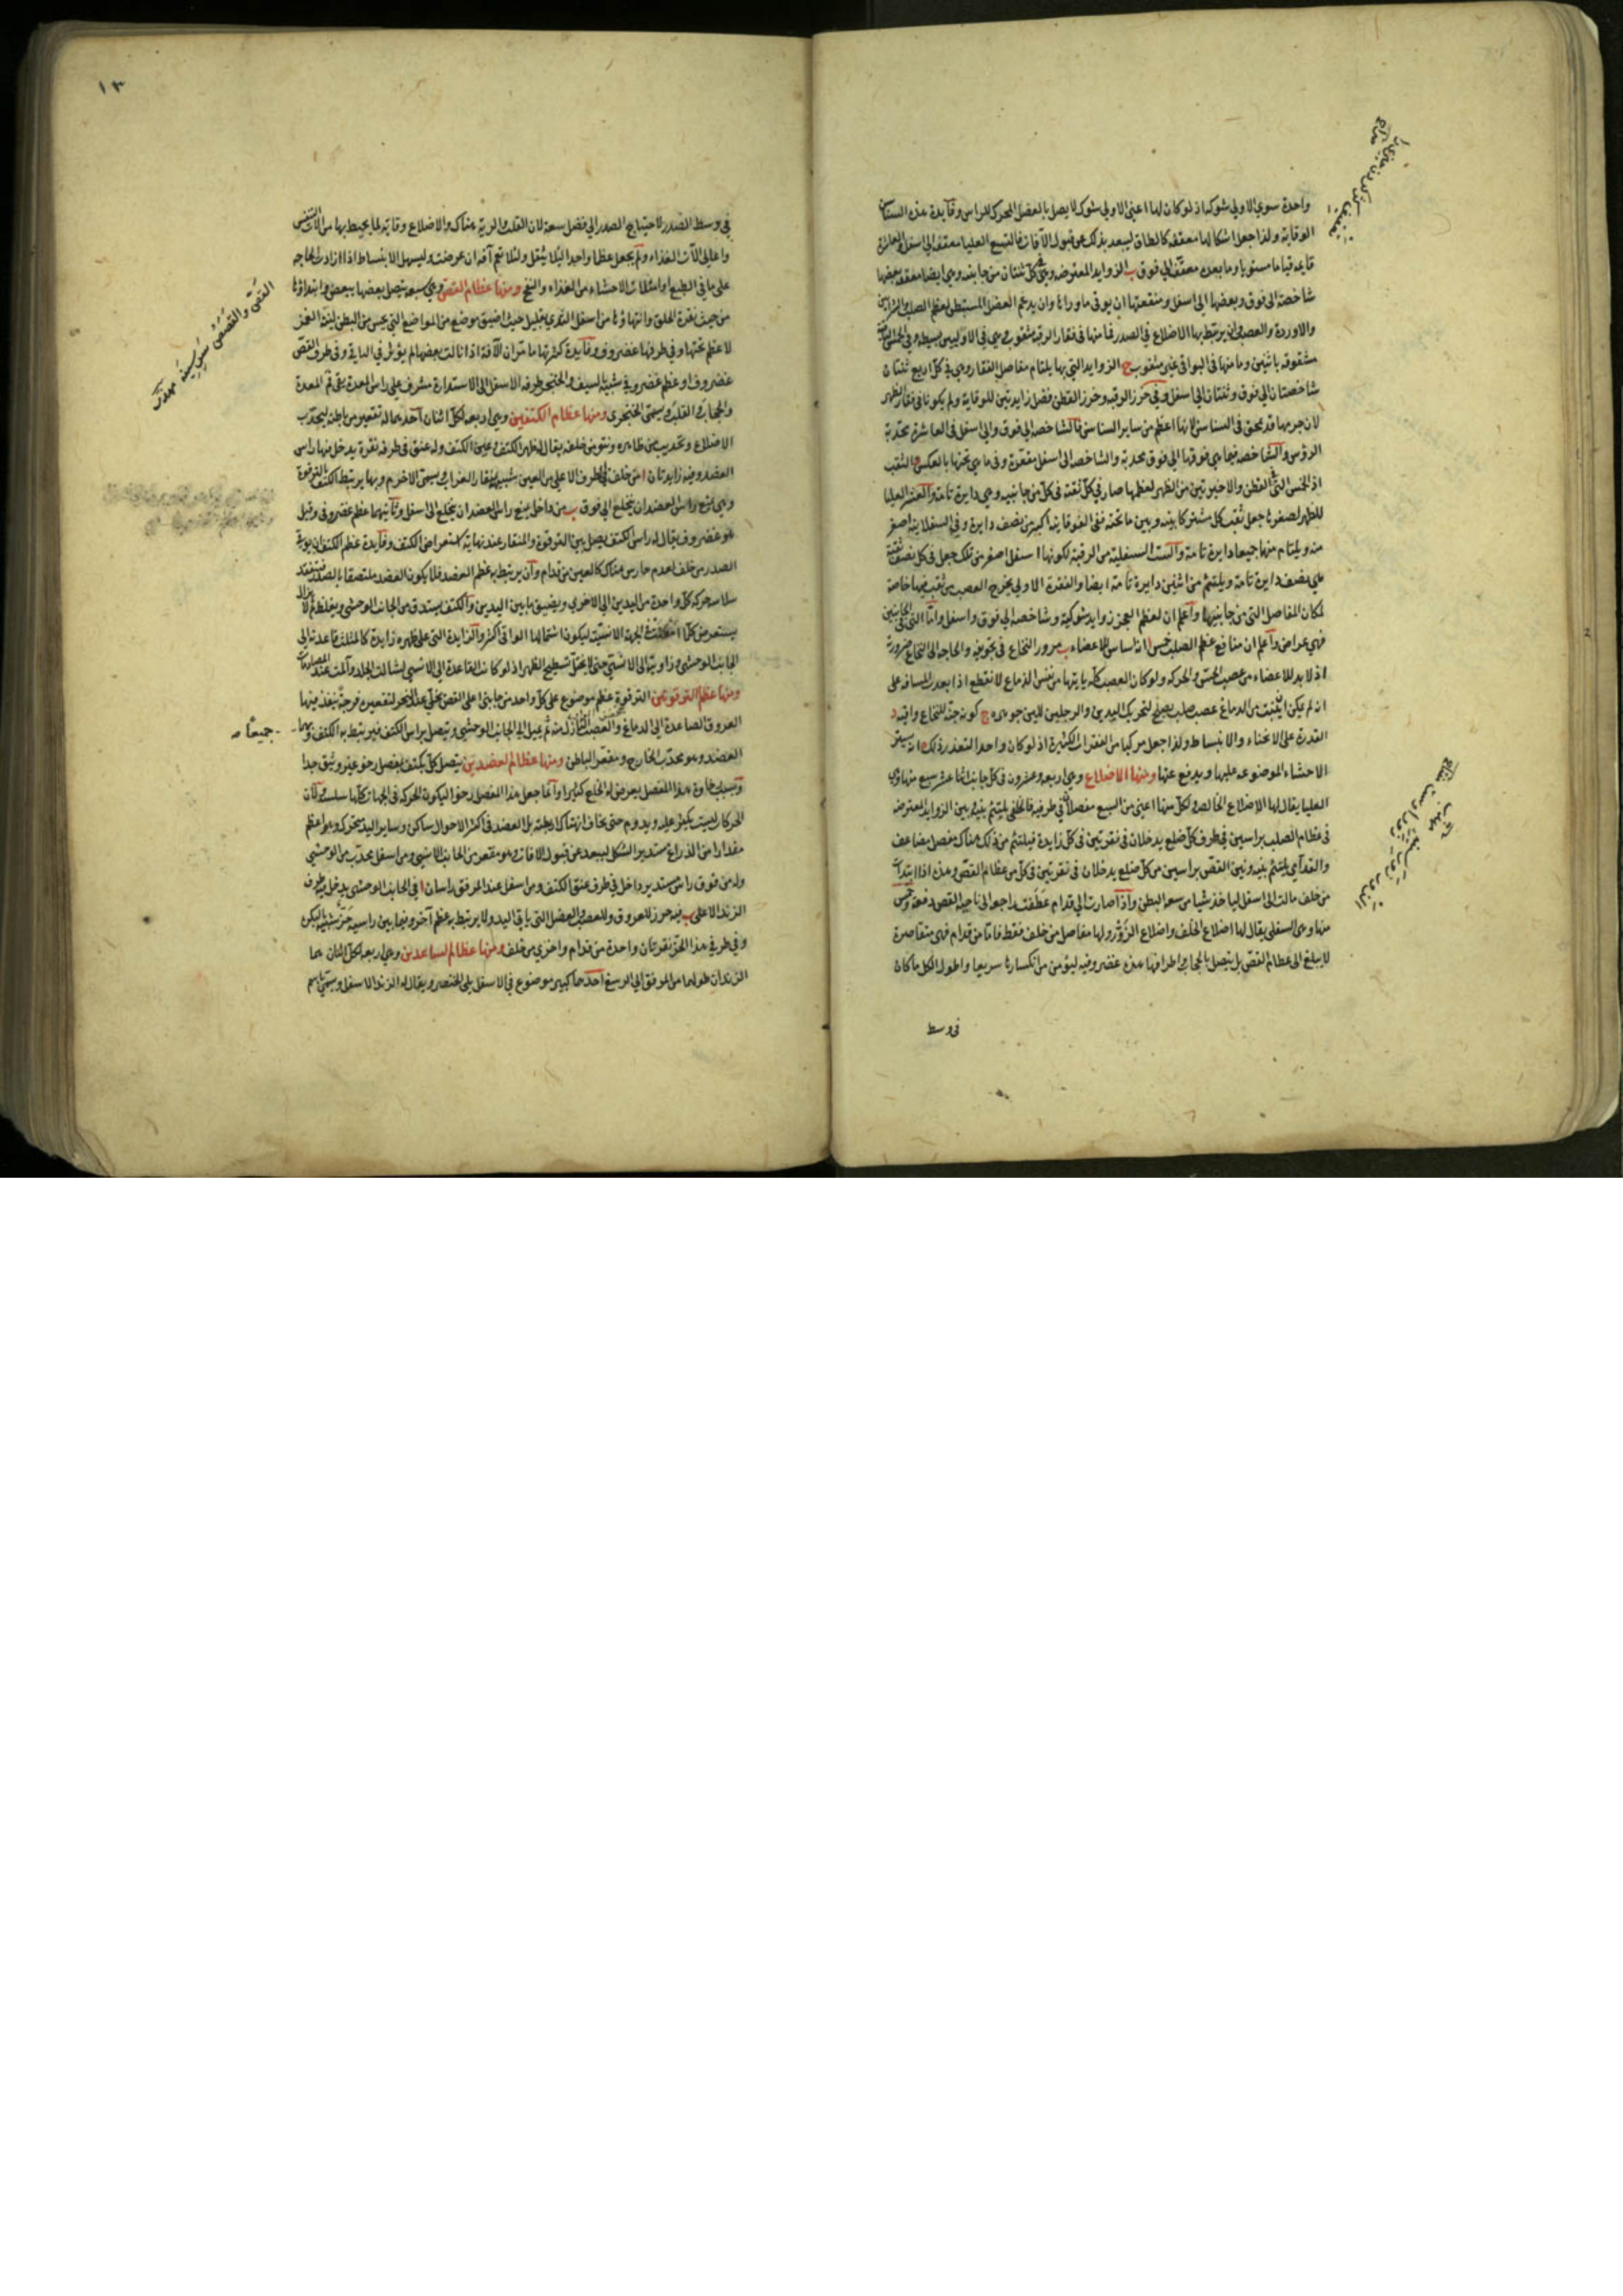 واحدة سوي الاولي شوكه اذ لو كان لها اعني الاولي شوكه لا يصل بالعضل المحرك للراس وفايدة هذه السناسن
الوقاية ولذا جعل اشكالها معقفه كالطاق ليبعد بذلك عن قبول الآفات فالتسع العليا معقفه الي اسفل والعاشرة
قايمه قياما مستويا وما بعدها معقفه الي فوق ب الزوايد المعترضه وهي في كل ثنتان من جانبيه وهي ايضا معقفه بعضها
شاخصة الي فوق وبعضها الي اسفل ومنفعتها ان يوقي ماوراها وان يدعم العضل المستبطن لعظم الصلب والشرايين
والاوردة والعصب وان يرتبط بها الاضلاع في الصدر فما منها في فقار الرقبة مثقوب وهي في الاوليين بسيطه وفي الخمس
مشقوقه باثنين وما منها في البواقي غير مثقوب ج الزوايد التي بها يلتام مفاصل الفقار وهي في كل اربع ثنتان
شاخصتان الي فوق وثنتان الي اسفل وفي خرز الرقبه وخرز القطن فضل زايدتين للوقاية ولم يكونا في فقار الظهر
لان جرمها قد محق في السناسن لانها اعظم من ساير السناسن فالشاخصه الي فوق والي اسفل في العاشرة محدبة
الرؤس والشاخصه فيما هي فوقها الي فوق محدبة والشاخصه الي اسفل مقعرة وفي ما هي تحتها بالعكس د الثقب
اذ الخمس التي في القطن والاخيرتين من الظهر لعظمها صار في كل ثقبه في كل من جانبيه وهي دايرة تامة والعشر العليا
للظهر لصغرها جعل ثقب كل مشتركا بينه وبين ما تحته ففي الفوقاينه اكبر من نصف دايرة وفي السفلاينه اصغر
منه ويلتام منها جميعا دايرة تامة والست السفليه من الرقبة لكونها اسفل اصغر من تلك جعل في كل نصف ثقبة
علي نصف دايرة تامة ويلتئم من اثنين دايرة تامة ايضا والفقرة الاولي يخرج العصب من ثقب فيها خاصة
لمكان المفاصل التي من جانبيها واعلم ان لعظم العجز زوايد شوكية وشاخصة الي فوق واسفل واما التي في الجانبين
فهي عراض واعلم ان منافع عظم الصلب خمس ا انه اساس للاعضاء ب مرور النخاع في تجويفه والحاجه الي النخاع ضرورة
اذ لا بد للاعضاء من عصب الحس والحركه ولو كان العصب كله ياتيها من نفس الدماغ لانقطع اذا بعدت المسافه علي
انه لم يمكن ان ينبت من الدماغ عصب صلب يصلح لتحريك اليدين والرجلين للين جوهره ج كونه جنة للنخاع واقيه د
القدرة علي الانحناء والانبساط ولذا جعل مركبا من الفقرات الكثيرة اذ لو كان واحدا لتعذر ذلك ه انه يستر
الاحشاء الموضوعه عليها ويدفع عنها ومنها الاضلاع وهي اربعه وعشرون في كل جانب اثنا عشر سبع منها وهي
العليا يقال لها الاضلاع الخالصه ولكل منها اعني من السبع مفصلان في طرفيه فالخلفي يلتئم بينه وبين الزوايد المعترضه
في عظام الصلب براسين في طرف كل ضلع يدخلان في نقرتين في كل زايدة فيلتئم من ذلك هناك مفصل مضاعف
والقدامي يلتئم بينه وبين القص براسين من كل ضلع يدخلان في نقرتين في كل من عظام القص وهذه اذا ابتدات
من خلف مالت الي اسفل لياخذ شيا من سعه البطن واذا صارت الي قدام عطفت راجعا الي ناحيه القص دفعه وخمس
منها وهي السفلي يقال لها اضلاع الخلف واضلاع الزور ولها مفاصل من خلف فقط فاما من قدام فهي متقاصرة
لا يبلغ الي عظام القص بل يتصل بالحجاب واطرافها هذه غضروفيه ليؤمن من انكسارها سريعا واطول الكل ما كان
في وسط
١٣
في وسط الصدر لاحتياج الصدر الي فضل سعة لان القلب والرية هناك والاضلاع وقاية لما يحيط بها من الات التنفس
واعالي الآت الغذاء ولم يجعل عظما واحدا ليلا يثقل ولئلا يعم آفة ان عرضت وليسهل الانبساط اذا ازادت الحاجه
علي ما في الطبع او امتلات الاحشاء من الغذاء والنفخ ومنها عظام القص وهي سبعه يتصل بعضها ببعض وابتداؤها
من حيث نقرة الحلق وانتهاؤها من اسفل الثدي بقليل حيث اضيق موضع من المواضع التي يحس من البطن لينة الغمز
لا عظم تحتها وفي طرفها غضروف وفايدة كثرتها ما مر ان الآفة اذا نالت بعضها لم يؤثر في الباقي وفي طرف القص
غضروف او عظم غضروفي شبيه بالسيف او الخنجر وطرفه الاسفل الي الاستدارة مشرف علي راس المعدة يقي فم المعدة
والحجاب والقلب ويسمي الخنجري ومنها عظام الكتفين وهي اربعه لكل اثنان احدهما له تقعير من باطنه لتحدب
الاضلاع وتحديب من ظاهره ونتو من خلفه يقال له ظهر الكتف وعين الكتف وله عنق في طرفه نقرة يدخل فيها راس
العضد وفيه زايدتان ا من خلف في طرف الاعلي من العين شبيه بمنقار الغراب ويسمي الاخرم وبها يرتبط الكتف بالترقوة
وهي تمنع راس العضد ان ينخلع الي فوق ب من داخل يمنع راس العضد ان ينخلع الي اسفل وثانيهما عظم غضروفي وقيل
هو غضروف يقال له راس الكتف يصل بين الترقوة والمنقار عند نهاية استعراض الكتف وفايدة عظم الكتف ان يوقي
الصدر من خلف لعدم حارس هناك كالعين من قدام وان يرتبط به عظم العضد فلا يكون العضد ملتصقا بالصدر فتنعقد
سلاسه حركة كل واحدة من اليدين الي الاخري ويضيق ما بين اليدين والكتف يستدق من الجانب الوحشي ويغلظ ثم لا يزال
يستعرض كلما امعنت في الجهة الانسية ليكون اشتمالها الواقي اكثر والزايدة التي علي ظهره زايدة كالمثلث قاعدته الي
الجانب الوحشي وزاويته الي الانسي حتي لا يختل تسطيح الظهر اذ لو كانت القاعدة الي الانسي لشالت الجلد وآلمت عند المصادمات
ومنها عظم الترقوتين الترقوة عظم موضوع علي كل واحد من جانبي اعلي القص يخلي عند النحر لتقعيره فرجة ينفذ فيها
العروق الصاعدة الي الدماغ والعصب النازل منه ثم يميل الي الجانب الوحشي ويتصل براس الكتف فيرتبط به الكتف وبهما
جميعًا صه
العضد وهو محدب الخارج ومقعر الباطن ومنها عظام العضدين يتصل كل بكتف بمفصل رخو غير وثيق جدا
وبسبب رخاوة هذا المفصل يعرض له الخلع كثيرا وانما جعل هذا المفصل رخوا ليكون الحركه في الجهات كلها سلسة ولان
الحركات ليست يكثر عليه ويدوم حتي يخاف انهتاك اربطته بل العضد في اكثر الاحوال ساكن وساير اليد متحرك وهو اعظم
مقدارا من الذراع مستدير الشكل ليبعد عن قبول الافات وهو مقعر من الجانب الانسي ومن اسفل محدب من الوحشي
وله من فوق راس مستدير داخل في طرف عنق الكتف ومن اسفل عند المرفق راسان ا في الجانب الوحشي يدخل فيه طرف
الزند الاعلي ب فيه حرز للعروق وللعصب والعضل التي ياتي اليد ولا يرتبط به عظم آخر وفيما بين راسيه حز شبيه بالبكرة
وفي طرفي هذا الحز نقرتان واحدة من قدام واخري من خلف ومنها عظام الساعدين وهي اربعه لكل اثنان هما
الزندان طولهما من المرفق الي الرسغ احدهما كبير موضوع في الاسفل يلي الخنصر ويقال له الزند الاسفل ويسمي باسم